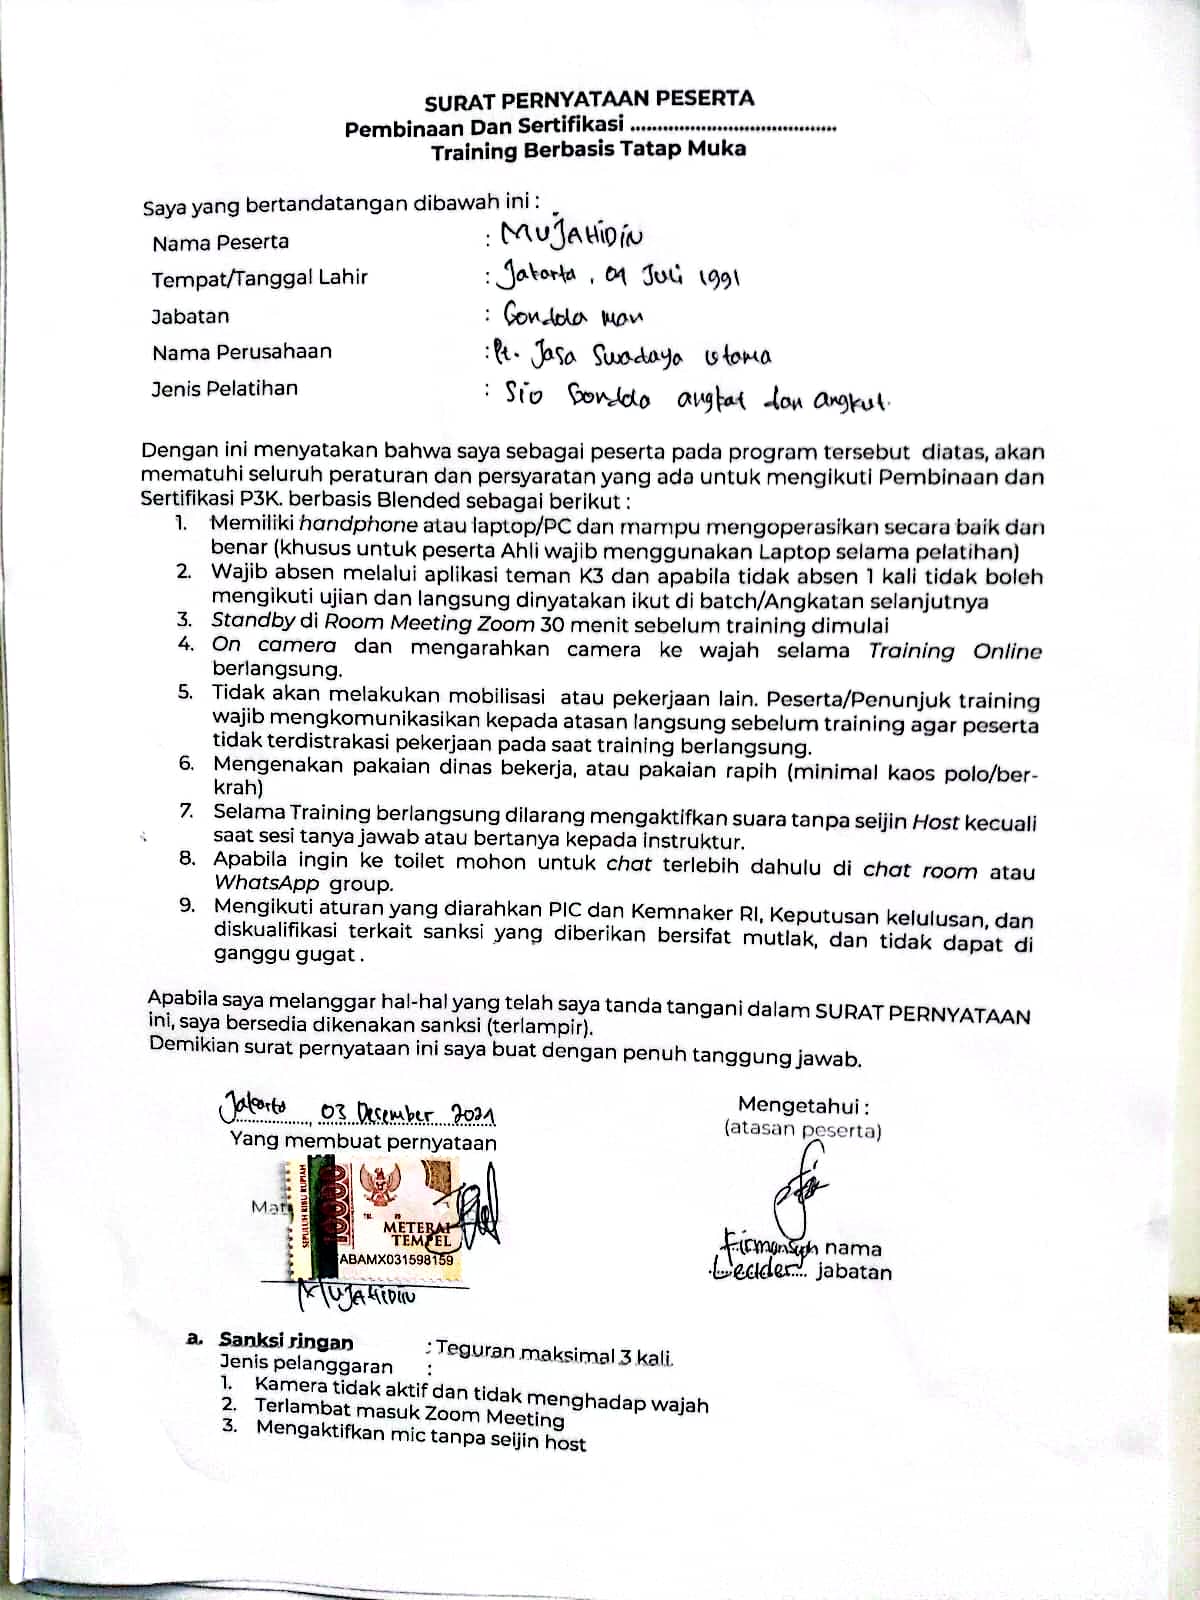 SURAT PERNYATAAN PESERTA
Pembinaan Dan Sertifikasi ......................................
Training Berbasis Tatap Muka
Saya yang bertandatangan dibawah ini :
Nama Peserta : MUJAHIDIN
Tempat/Tanggal Lahir : Jakarta, 09 Juli 1991
Jabatan : Gondola man
Nama Perusahaan : Pt. Jasa Swadaya Utama
Jenis Pelatihan : Sio Gondola angkat dan angkut.
Dengan ini menyatakan bahwa saya sebagai peserta pada program tersebut diatas, akan
mematuhi seluruh peraturan dan persyaratan yang ada untuk mengikuti Pembinaan dan
Sertifikasi P3K. berbasis Blended sebagai berikut :
1. Memiliki handphone atau laptop/PC dan mampu mengoperasikan secara baik dan
benar (khusus untuk peserta Ahli wajib menggunakan Laptop selama pelatihan)
2. Wajib absen melalui aplikasi teman K3 dan apabila tidak absen 1 kali tidak boleh
mengikuti ujian dan langsung dinyatakan ikut di batch/Angkatan selanjutnya
3. Standby di Room Meeting Zoom 30 menit sebelum training dimulai
4. On camera dan mengarahkan camera ke wajah selama Training Online
berlangsung.
5. Tidak akan melakukan mobilisasi atau pekerjaan lain. Peserta/Penunjuk training
wajib mengkomunikasikan kepada atasan langsung sebelum training agar peserta
tidak terdistrakasi pekerjaan pada saat training berlangsung.
6. Mengenakan pakaian dinas bekerja, atau pakaian rapih (minimal kaos polo/ber-
krah)
7. Selama Training berlangsung dilarang mengaktifkan suara tanpa seijin Host kecuali
saat sesi tanya jawab atau bertanya kepada instruktur.
8. Apabila ingin ke toilet mohon untuk chat terlebih dahulu di chat room atau
WhatsApp group.
9. Mengikuti aturan yang diarahkan PIC dan Kemnaker RI, Keputusan kelulusan, dan
diskualifikasi terkait sanksi yang diberikan bersifat mutlak, dan tidak dapat di
ganggu gugat .
Apabila saya melanggar hal-hal yang telah saya tanda tangani dalam SURAT PERNYATAAN
ini, saya bersedia dikenakan sanksi (terlampir).
Demikian surat pernyataan ini saya buat dengan penuh tanggung jawab.
Jakarta, 03 Desember 2021
Yang membuat pernyataan
Mat
SEPULUH RIBU RUPIAH
10000
METERAI
TEMPEL
ABAMX031598159
MUJAHIDIN
Mengetahui :
(atasan peserta)
Firmansyah nama
Leader jabatan
a. Sanksi ringan : Teguran maksimal 3 kali.
Jenis pelanggaran :
1. Kamera tidak aktif dan tidak menghadap wajah
2. Terlambat masuk Zoom Meeting
3. Mengaktifkan mic tanpa seijin host